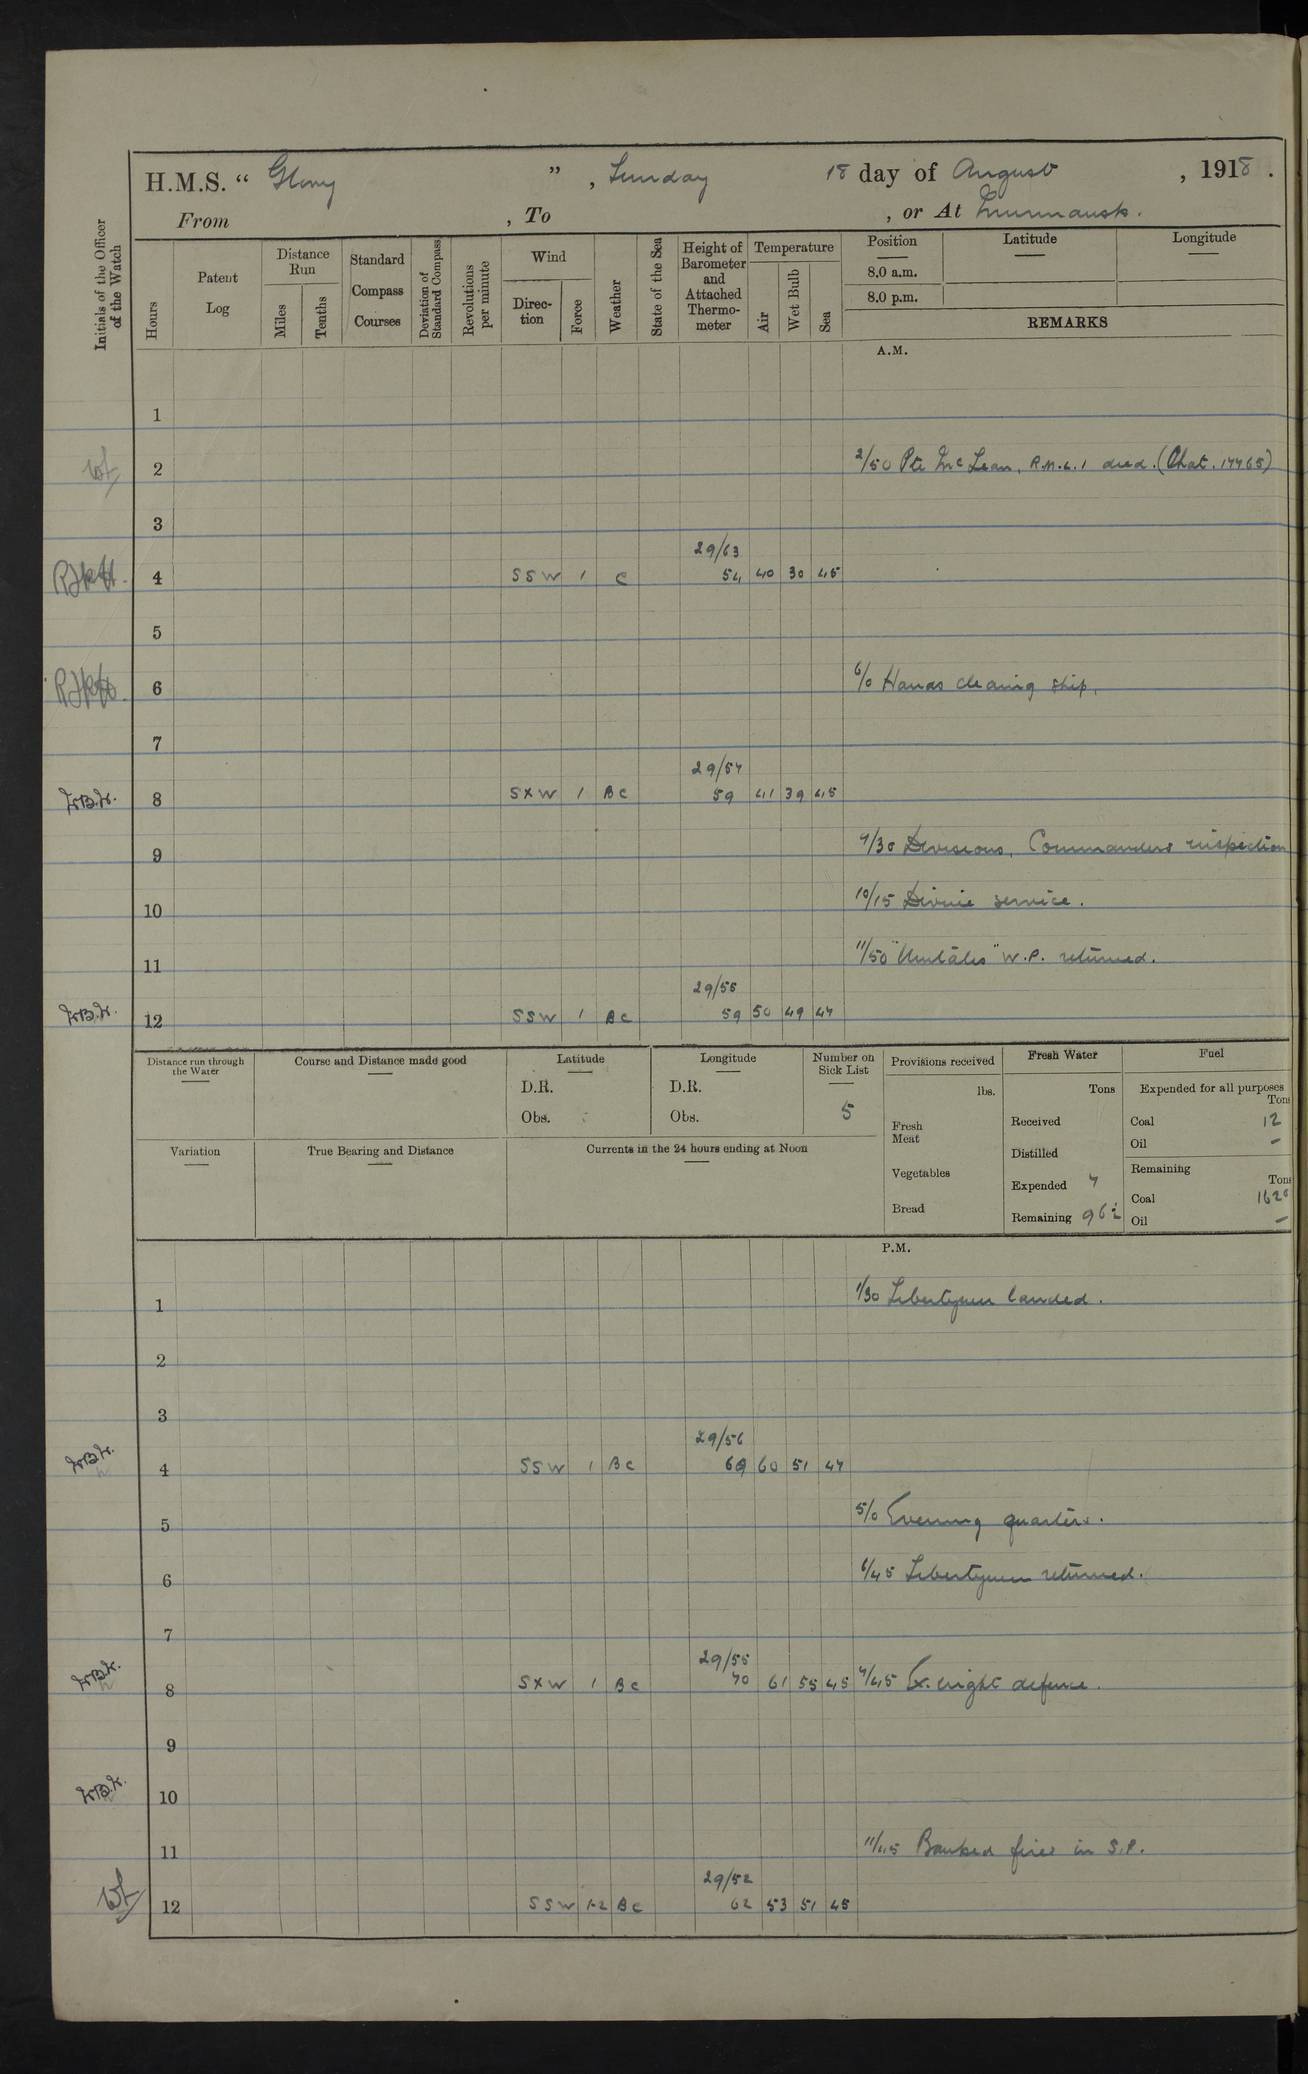 H.M.S. “ Glory ” , Sunday 18 day of August , 1918 .
From , To , or At Murmansk.
Initials of the Officer of the Watch
Hours
Patent Log
Distance Run
Miles
Tenths
Standard Compass Courses
Deviation of Standard Compass
Revolutions per minute
Wind
Direc-tion
Force
Weather
State of the Sea
Height of Barometer and Attached Thermo-meter
Temperature
Air
Wet Bulb
Sea
Position
8.0 a.m.
8.0 p.m.
Latitude
Longitude
REMARKS
A.M.
1
2 2/50 Pte McLean, R.M.L.I died. (Chat. 17765)
3
29/63
4 SSW 1 C 54 40 30 45
5
6 6/0 Hands cleaning ship.
7
29/57
W.B.W. 8 SXW 1 BC 59 41 39 45
9 9/30 Divisions, Commanders inspection
10 10/15 Divine service.
11 11/50 W.P. returned.
29/55
W.B.W. 12 SSW 1 BC 59 50 49 47
Distance run through the Water
Course and Distance made good
Latitude
D.R.
Obs.
Longitude
D.R.
Obs.
Number on Sick List
5
Variation
True Bearing and Distance
Currents in the 24 hours ending at Noon
Provisions received
lbs.
Fresh Meat
Vegetables
Bread
Fresh Water
Tons
Received
Distilled
Expended 7
Remaining 96½
Fuel
Expended for all purposes
Tons
Coal 12
Oil –
Remaining
Tons
Coal 1620
Oil –
P.M.
1 1/30 Libertymen landed.
2
3
29/56
W.B.W. 4 SSW 1 BC 69 60 51 47
5 5/0 Evening quarters.
6 6/45 Libertymen returned.
7
29/55
W.B.W. 8 SXW 1 BC 70 61 55 45 7/45 Ex. night defence.
9
W.B.W. 10
11 11/45 Banked fires in S.P.
29/52
12 SSW 1-2 BC 62 53 51 45